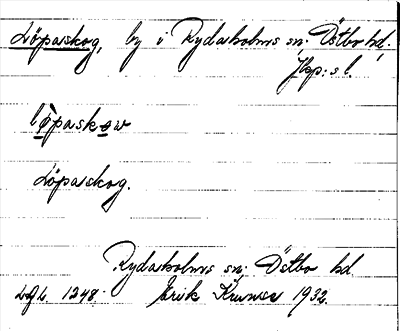 Löpaskog, by i Rydaholms sn; Östbo hd;
Jkp: s l.
löpaskow
Löpaskog.
Rydaholms sn; Östbo hd.
LGL. 1248. Erik 1932.